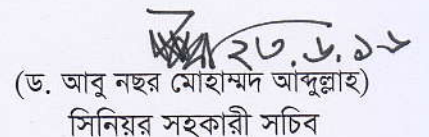 ২৩.৬.১৬
(ড. আবু নছর মোহাম্মদ আব্দুল্লাহ)
সিনিয়র সহকারী সচিব